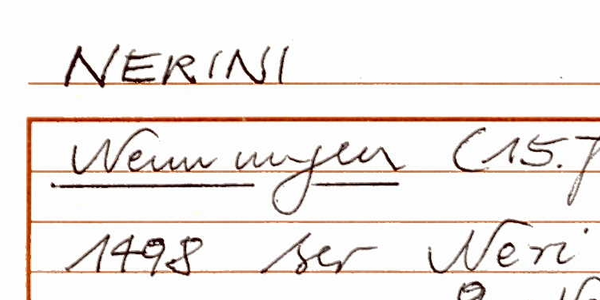 NERINI
Nennungen (15.J
1498 ser Neri